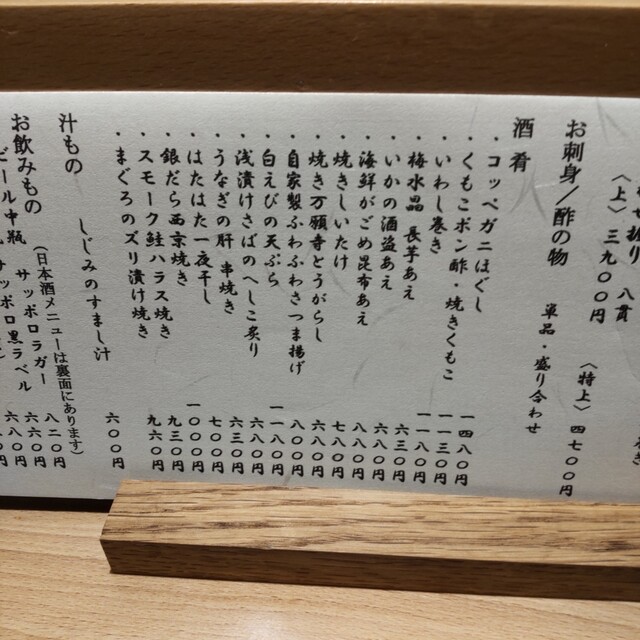 折り 八貫
〈上〉三九〇〇円
〈特上〉四七〇〇円
お刺身／酢の物 単品・盛り合わせ
酒肴
・コッペガニほぐし 一四八〇円
・くもこポン酢・焼きくもこ 一一三〇円
・いわし巻き 一一八〇円
・梅水晶 長芋あえ 六三〇円
・いかの酒盗あえ 六八〇円
・海鮮がごめ昆布あえ 八八〇円
・焼きしいたけ 七八〇円
・焼き万願寺とうがらし 六八〇円
・自家製ふわふわさつま揚げ 八〇〇円
・白えびの天ぷら 一一八〇円
・浅漬けさばのへしこ炙り 六八〇円
・うなぎの肝 串焼き 六三〇円
・はたはた一夜干し 七〇〇円
・銀だら西京焼き 一〇〇〇円
・スモーク鮭ハラス焼き 九三〇円
・まぐろのズリ漬け焼き 九六〇円
汁もの しじみのすまし汁 六〇〇円
お飲みもの （日本酒メニューは裏面にあります）
ビール中瓶 サッポロラガー 八二〇円
サッポロ黒ラベル 六六〇円
六八〇円